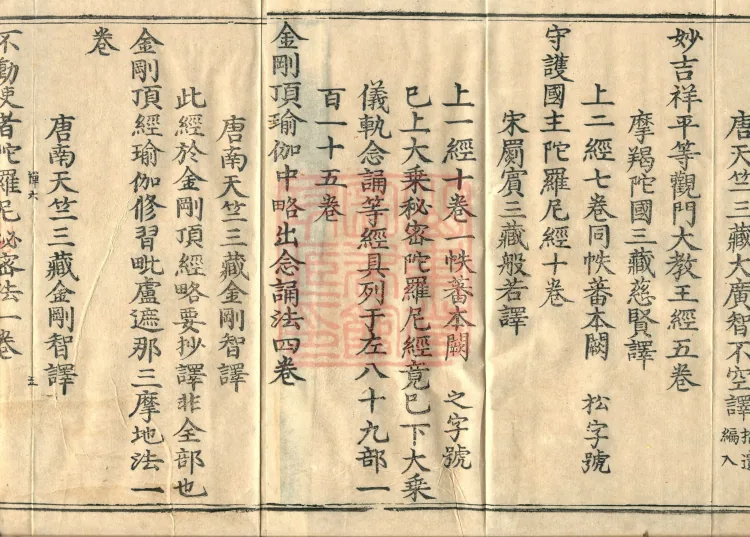 唐天竺三藏大廣智不空譯 拾遺編入
妙吉祥平等觀門大教王經五卷
摩羯陀國三藏慈賢譯
上二經七卷同帙蕃本闕 松字號
守護國主陀羅尼經十卷
宋罽賓三藏般若譯
上一經十卷一帙蕃本闕 之字號
已上大乘秘密陀羅尼經竟已下大乘
儀軌念誦等經具列于左八十九部一
百一十五卷
金剛頂瑜伽中略出念誦法四卷
唐南天竺三藏金剛智譯
此經於金剛頂經略要抄譯非全部也
金剛頂經瑜伽修習毗盧遮那三摩地法一
卷
唐南天竺三藏金剛智譯
五
不動使者陀羅尼秘密法一卷